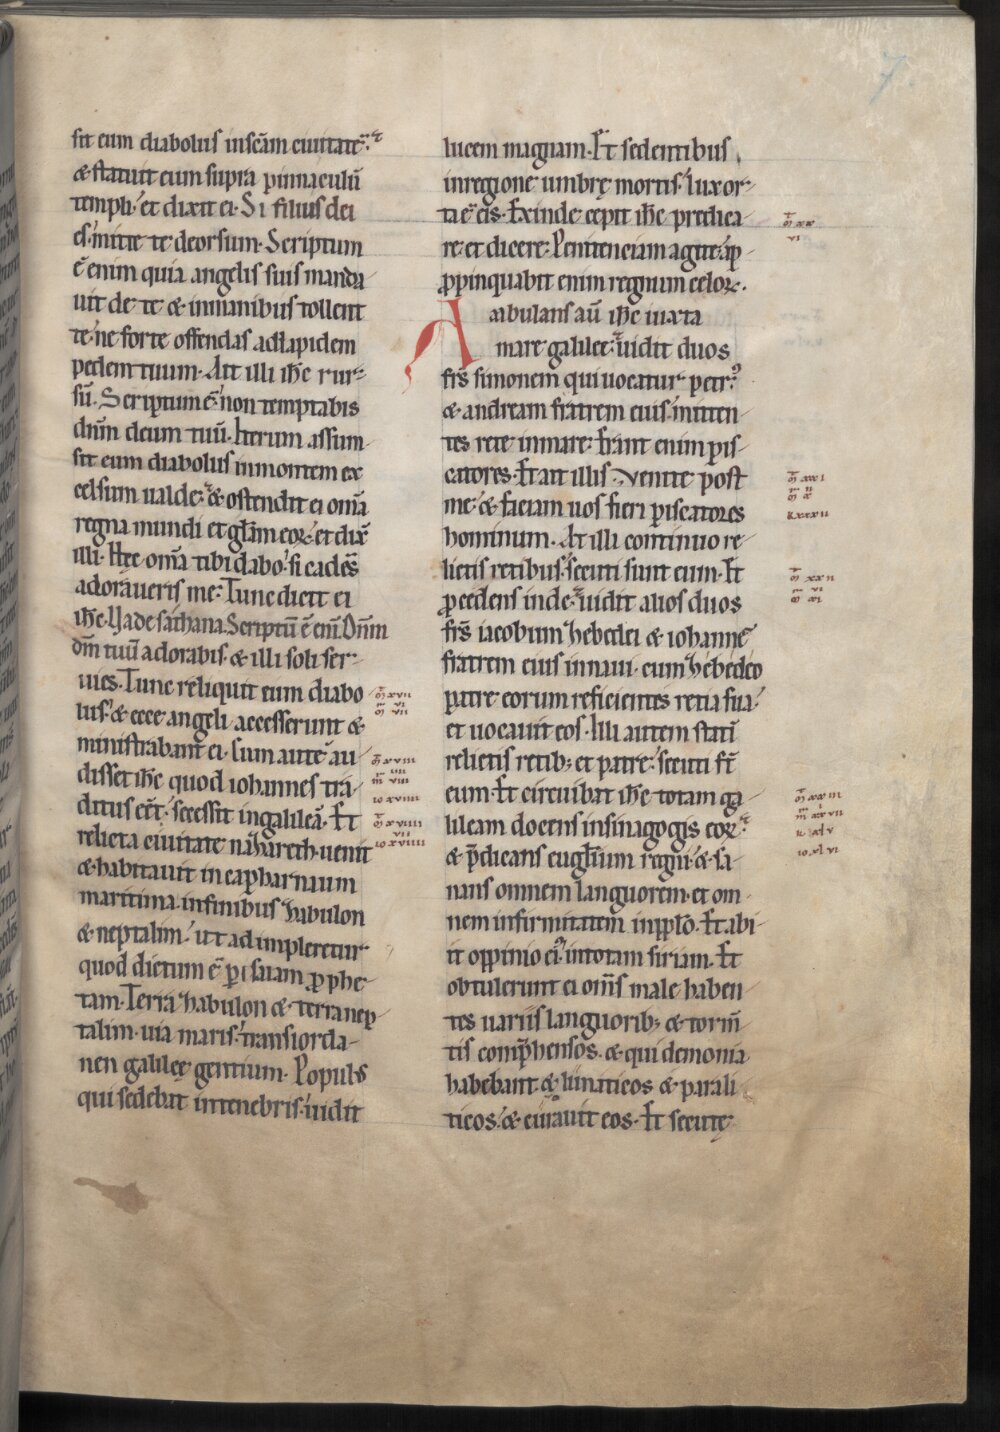 7.
sit eum diabolus in scām ciuitatē.
& statuit eum supra pinnaculū
templi. et dixit ei. Si filius dei
es. mitte te deorsum. Scriptum
ē enim quia angelis suis manda
uit de te & in manibus tollent
te. ne forte offendas ad lapidem
pedem tuum. Ait illi ihc rur-
sū. Scriptum ē. non temptabis
dnm deum tuū. Iterum assum-
sit eum diabolus in montem ex
celsum ualde. & ostendit ei omā
regna mundi et glam eor. et dix
illi. Hec omā tibi dabo. si cadēs
adoraueris me. Tunc dicit ei
ihc. Uade sathana. Scriptū ē eni. Dnm
dm tuū adorabis. & illi soli ser-
uies. Tunc reliquit eum diabo
lus. & ecce angeli accesserunt &
ministrabant ei. Cum autē au
disset ihc quod iohannes tra-
ditus eēt. secessit in galileā. Et
relicta ciuitate nazareth. uenit
& habitauit in capharnaum
maritima. in finibus zabulon
& neptalim. ut adimpleretur
quod dictum ē p isaiam prophe-
tam. Terra zabulon & terra nep-
talim. uia maris. trans iorda-
nen galileę gentium. Populs
qui sedebat in tenebris. uidit
lucem magnam. Et sedentibus
in regione umbrę mortis. lux or-
ta ē eis. Exinde cepit ihc predica
re. et dicere. Penitenciam agite. ap
propinquabit enim regnum celor.
Ambulans aū ihc iuxta
mare galileę. uidit duos
frs simonem qui uocatur petr
& andream fratrem eius. mitten-
tes rete in mare. Erant enim pis-
catores. Et ait illis. Venite post
me. & faciam uos fieri piscatores
hominum. At illi continuo re-
lictis retibus. secuti sunt eum. Et
procedens inde. uidit alios duos
frs iacobum zebedei & iohannē
fratrem eius in naui. cum zebedeo
patre eorum reficientes retia sua.
et uocauit eos. Illi autem stati
relictis retib; et patre. secuti st
eum. Et circuibat ihc totam ga-
lileam docens in sinagogis eor.
& pdicans euglium regni. & sa-
nans omnem languorem. et om-
nem infirmitatem in pplo. Et abi-
it oppinio ei in totam siriam. Et
obtulerunt ei omīs male haben-
tes uariis languorib; & torm
tis comphensos. & qui demonia
habebant. & lunaticos & parali
ticos. & curauit eos. Et secutę